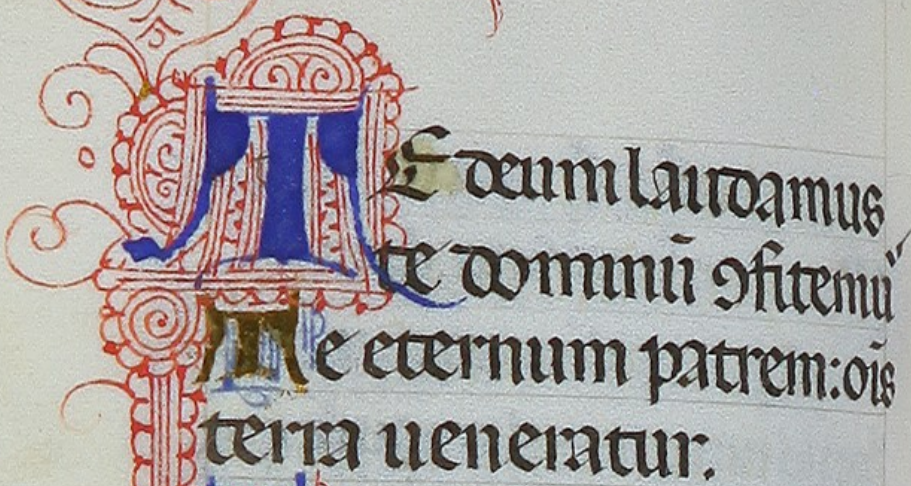 TE deum laudamus
te dominū ꝯfitemu᷒
Te eternum patrem: oīs
terra ueneratur.